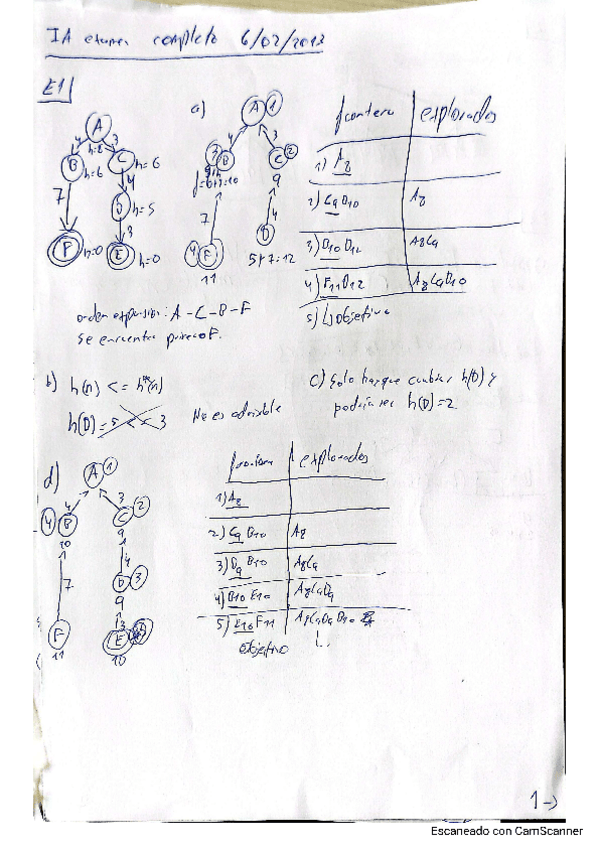 IA examen completo 6/02/2013
E1
A
h=8
4
3
B
h=6
C
h=6
7
4
D
h=5
3
F
h=0
E
h=0
a)
A 1
4
3
3 B
C 2
9
7
4
4 F
11
D
5+7=12
frontera explorados
1) A8
2) C9 B10 A8
3) B10 D12 A8C9
4) F11 D12 A8C9B10
5) Objetivo
orden expansión: A-C-B-F
Se encuentra primero F.
b) h(n) <= h*(n)
h(D)=5 <= 3 No es admisible
c) Solo hay que cambiar h(D) y
podría ser h(D)=2
d)
A 1
4
3
4 B
10
C 2
9
4
7
D 3
9
3
F
11
E
10
frontera explorados
1) A8
2) C9 B10 A8
3) D9 B10 A8C9
4) B10 E10 A8C9D9
5) E10 F11 A8C9D9B10
objetivo
1->
Escaneado con CamScanner